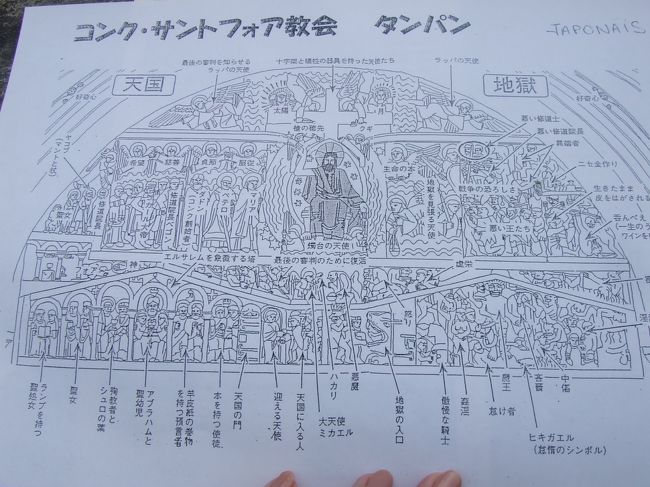 コンク・サントフォア教会 タンパン
JAPONAIS
天国
地獄
最後の審判を知らせる
ラッパの天使
十字架と犠牲の器具を持った天使たち
ラッパの天使
好奇心
好奇心
太陽
月
槍の穂先
クギ
悪い修道士
悪い修道院長
異端者
ニセ金作り
希望
慈善
貞節
服従
生命の本
地獄を見張る天使
戦争の恐ろしさ
生きたまま
皮をはがされる
悪い王たち
マリア
修道院長
燭台の天使
最後の審判のために復活
エルサレムを象徴する塔
神
虚栄
怒り
ランプを持つ
聖処女
聖女
殉教者と
シュロの葉
アブラハムと
聖幼児
羊皮紙の巻物
を持つ預言者
本を持つ使徒
天国の門
迎える天使
天国に入る人
大天使
ミカエル
ハカリ
悪魔
地獄の入口
傲慢な騎士
姦淫
怠け者
魔王
吝嗇
中傷
ヒキガエル
(怠惰のシンボル)